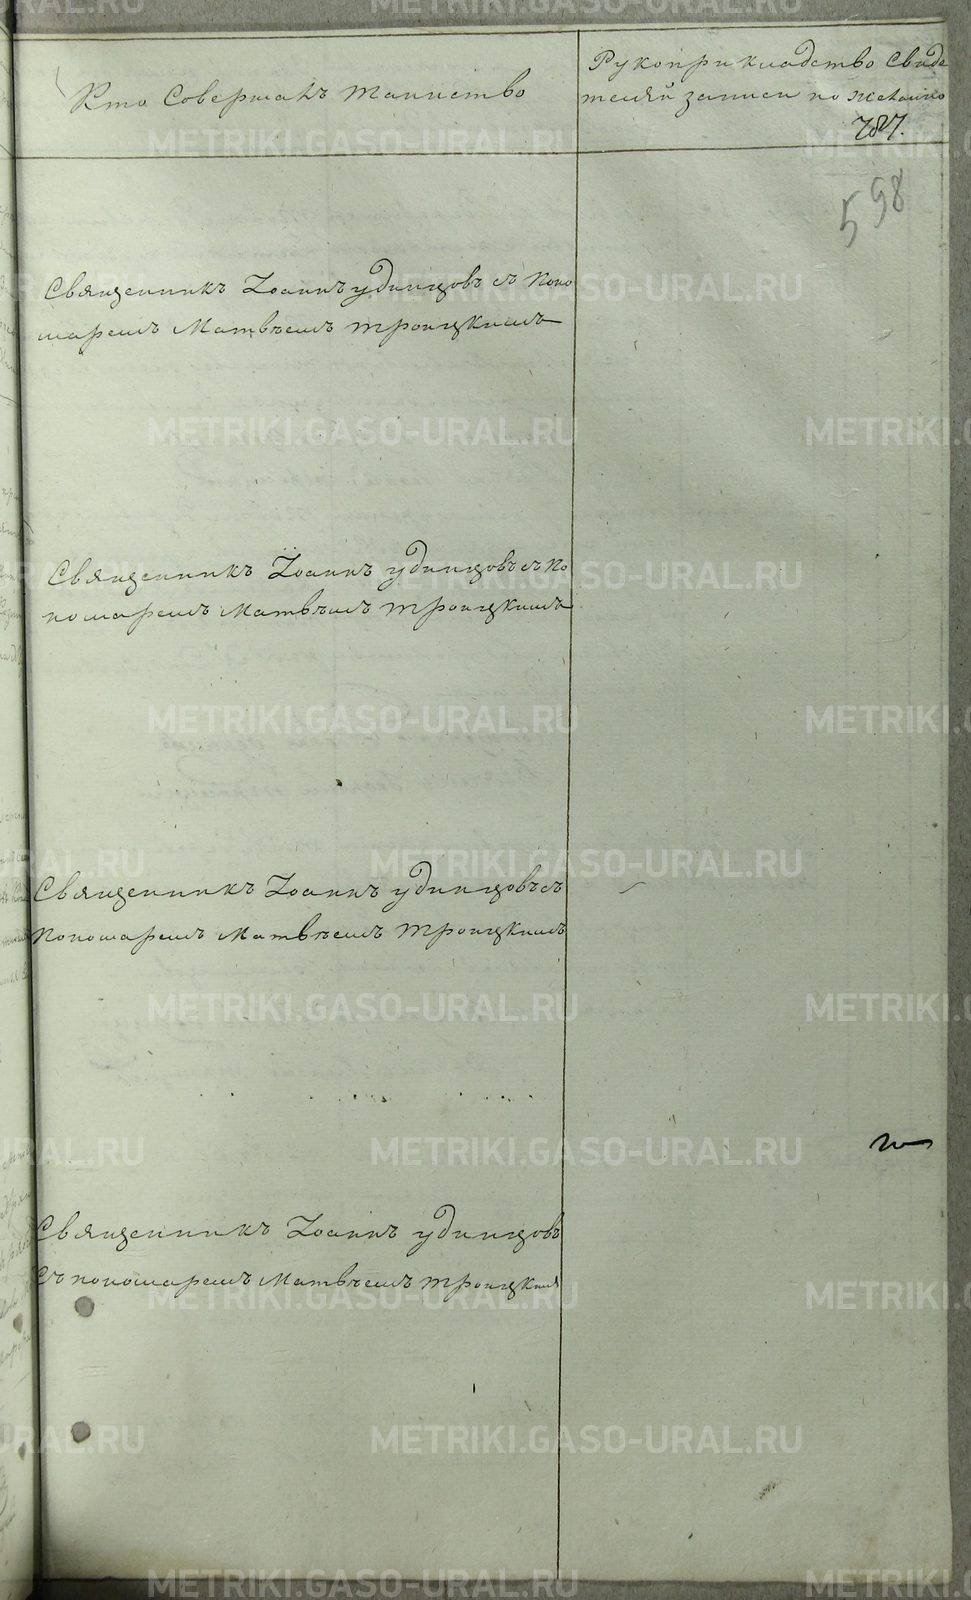 Кто Совершалъ таинство
Рукоприкладство Свиде
телей записи по желанію
787.
598
Священникъ Iоаннъ удинцовъ съ поно
маремъ Матвѣемъ троицкимъ
Священникъ Iоаннъ удинцовъ съ по
номаремъ Матвѣемъ троицкимъ
Священникъ Iоаннъ удинцовъ съ
пономаремъ Матвѣемъ троицкимъ
Священникъ Iоаннъ удинцовъ
съ пономаремъ Матвѣемъ троицким
METRIKI.GASO-URAL.RU